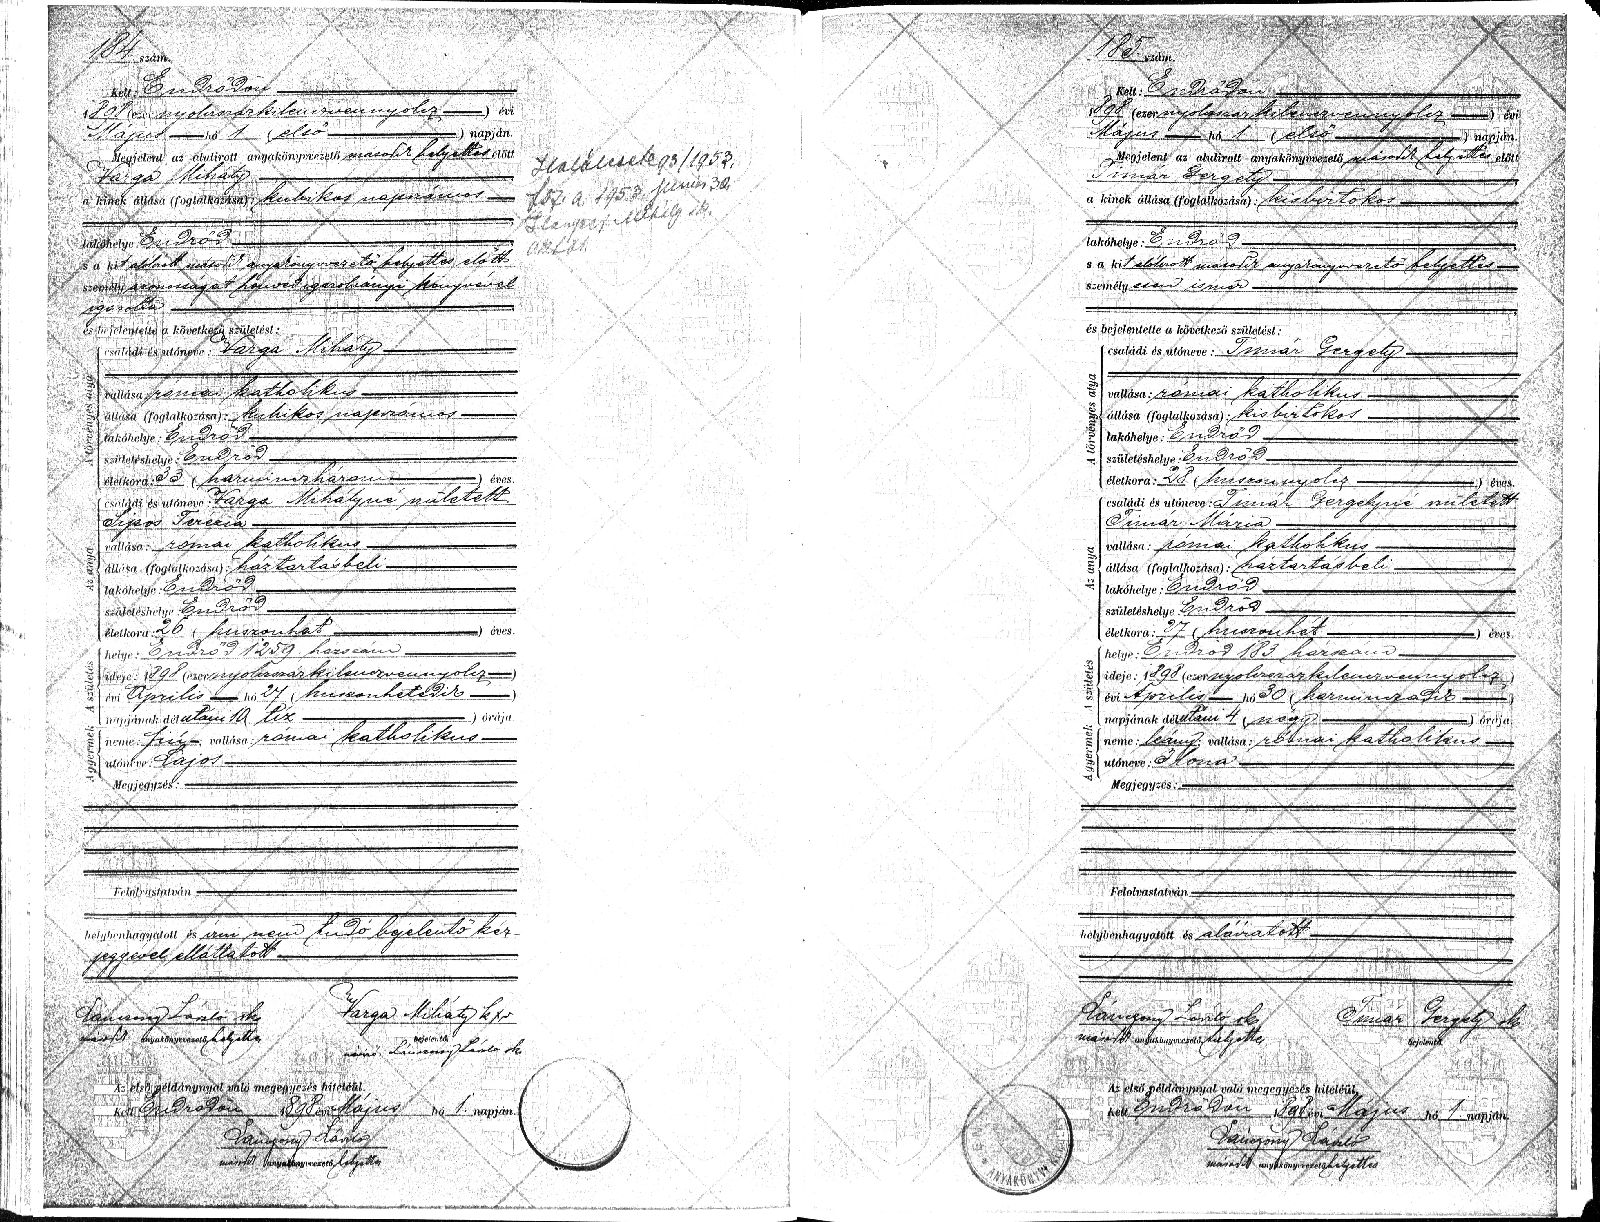 184 szám.
Kelt: Endrődön
1898 (ezernyolczszázkilenczvennyolcz) évi
Május hó 1 (első) napján.
Megjelent az alulirott anyakönyvvezető másodk helyettes előtt
Varga Mihály
a kinek állása (foglalkozása): kubikos napszámos
lakóhelye: Endrőd
s a kit alólirott másodk anyakönyvvezető helyettes előtt
személyazonosságát honvéd igazolványi könyvével
igazolta
és bejelentette a következő születést:
A törvényes atya
családi és utóneve: Varga Mihály
vallása: római katholikus
állása (foglalkozása): kubikos napszámos
lakóhelye: Endrőd
születéshelye: Endrőd
életkora: 33 (harminczhárom) éves.
Az anya
családi és utóneve: Varga Mihályné született
Sipos Terézia
vallása: római katholikus
állása (foglalkozása): háztartásbeli
lakóhelye: Endrőd
születéshelye: Endrőd
életkora: 26 (huszonhat) éves.
A születés
helye: Endrőd 1259 házszám
ideje: 1898 (ezernyolczszázkilenczvennyolcz)
évi április hó 27 (huszonhetedik)
napjának délutáni 10 (tíz) órája.
A gyermek
neme: fiú, vallása: római katholikus
utóneve: Lajos
Megjegyzés:
Felolvastatván
helybenhagyatott és irni nem tudó bejelentő kéz-
jegyével elláttatott
Lánczony László sk
másodk anyakönyvvezető helyettes
Varga Mihály k x v
bejelentő.
Lánczony László sk
Az első példánynyal való megegyezés hiteléül.
Kelt Endrődön 1898 évi Május hó 1. napján.
Lánczony László
másodk anyakönyvvezető helyettes
93/1953.
1953 junius 30.
185 szám.
Kelt: Endrődön
1898 (ezernyolczszázkilenczvennyolcz) évi
Május hó 1 (első) napján.
Megjelent az alulirott anyakönyvvezető másodk helyettes előtt
Timár Gergely
a kinek állása (foglalkozása): kisbirtokos
lakóhelye: Endrőd
s a kit alólirott másodk anyakönyvvezető helyettes
személyesen ismer
és bejelentette a következő születést:
A törvényes atya
családi és utóneve: Timár Gergely
vallása: római katholikus
állása (foglalkozása): kisbirtokos
lakóhelye: Endrőd
születéshelye: Endrőd
életkora: 28 (huszonnyolcz) éves.
Az anya
családi és utóneve: Timár Gergelyné született
Timár Mária
vallása: római katholikus
állása (foglalkozása): háztartásbeli
lakóhelye: Endrőd
születéshelye: Endrőd
életkora: 27 (huszonhét) éves.
A születés
helye: Endrőd 183 házszám
ideje: 1898 (ezernyolczszázkilenczvennyolcz)
évi április hó 30 (harminczadik)
napjának délutáni 4 (négy) órája.
A gyermek
neme: leány, vallása: római katholikus
utóneve: Ilona
Megjegyzés:
Felolvastatván
helybenhagyatott és aláiratott
Lánczony László sk
másodk anyakönyvvezető helyettes
Timár Gergely sk
bejelentő.
Az első példánynyal való megegyezés hiteléül.
Kelt Endrődön 1898 évi Május hó 1. napján.
Lánczony László
másodk anyakönyvvezető helyettes